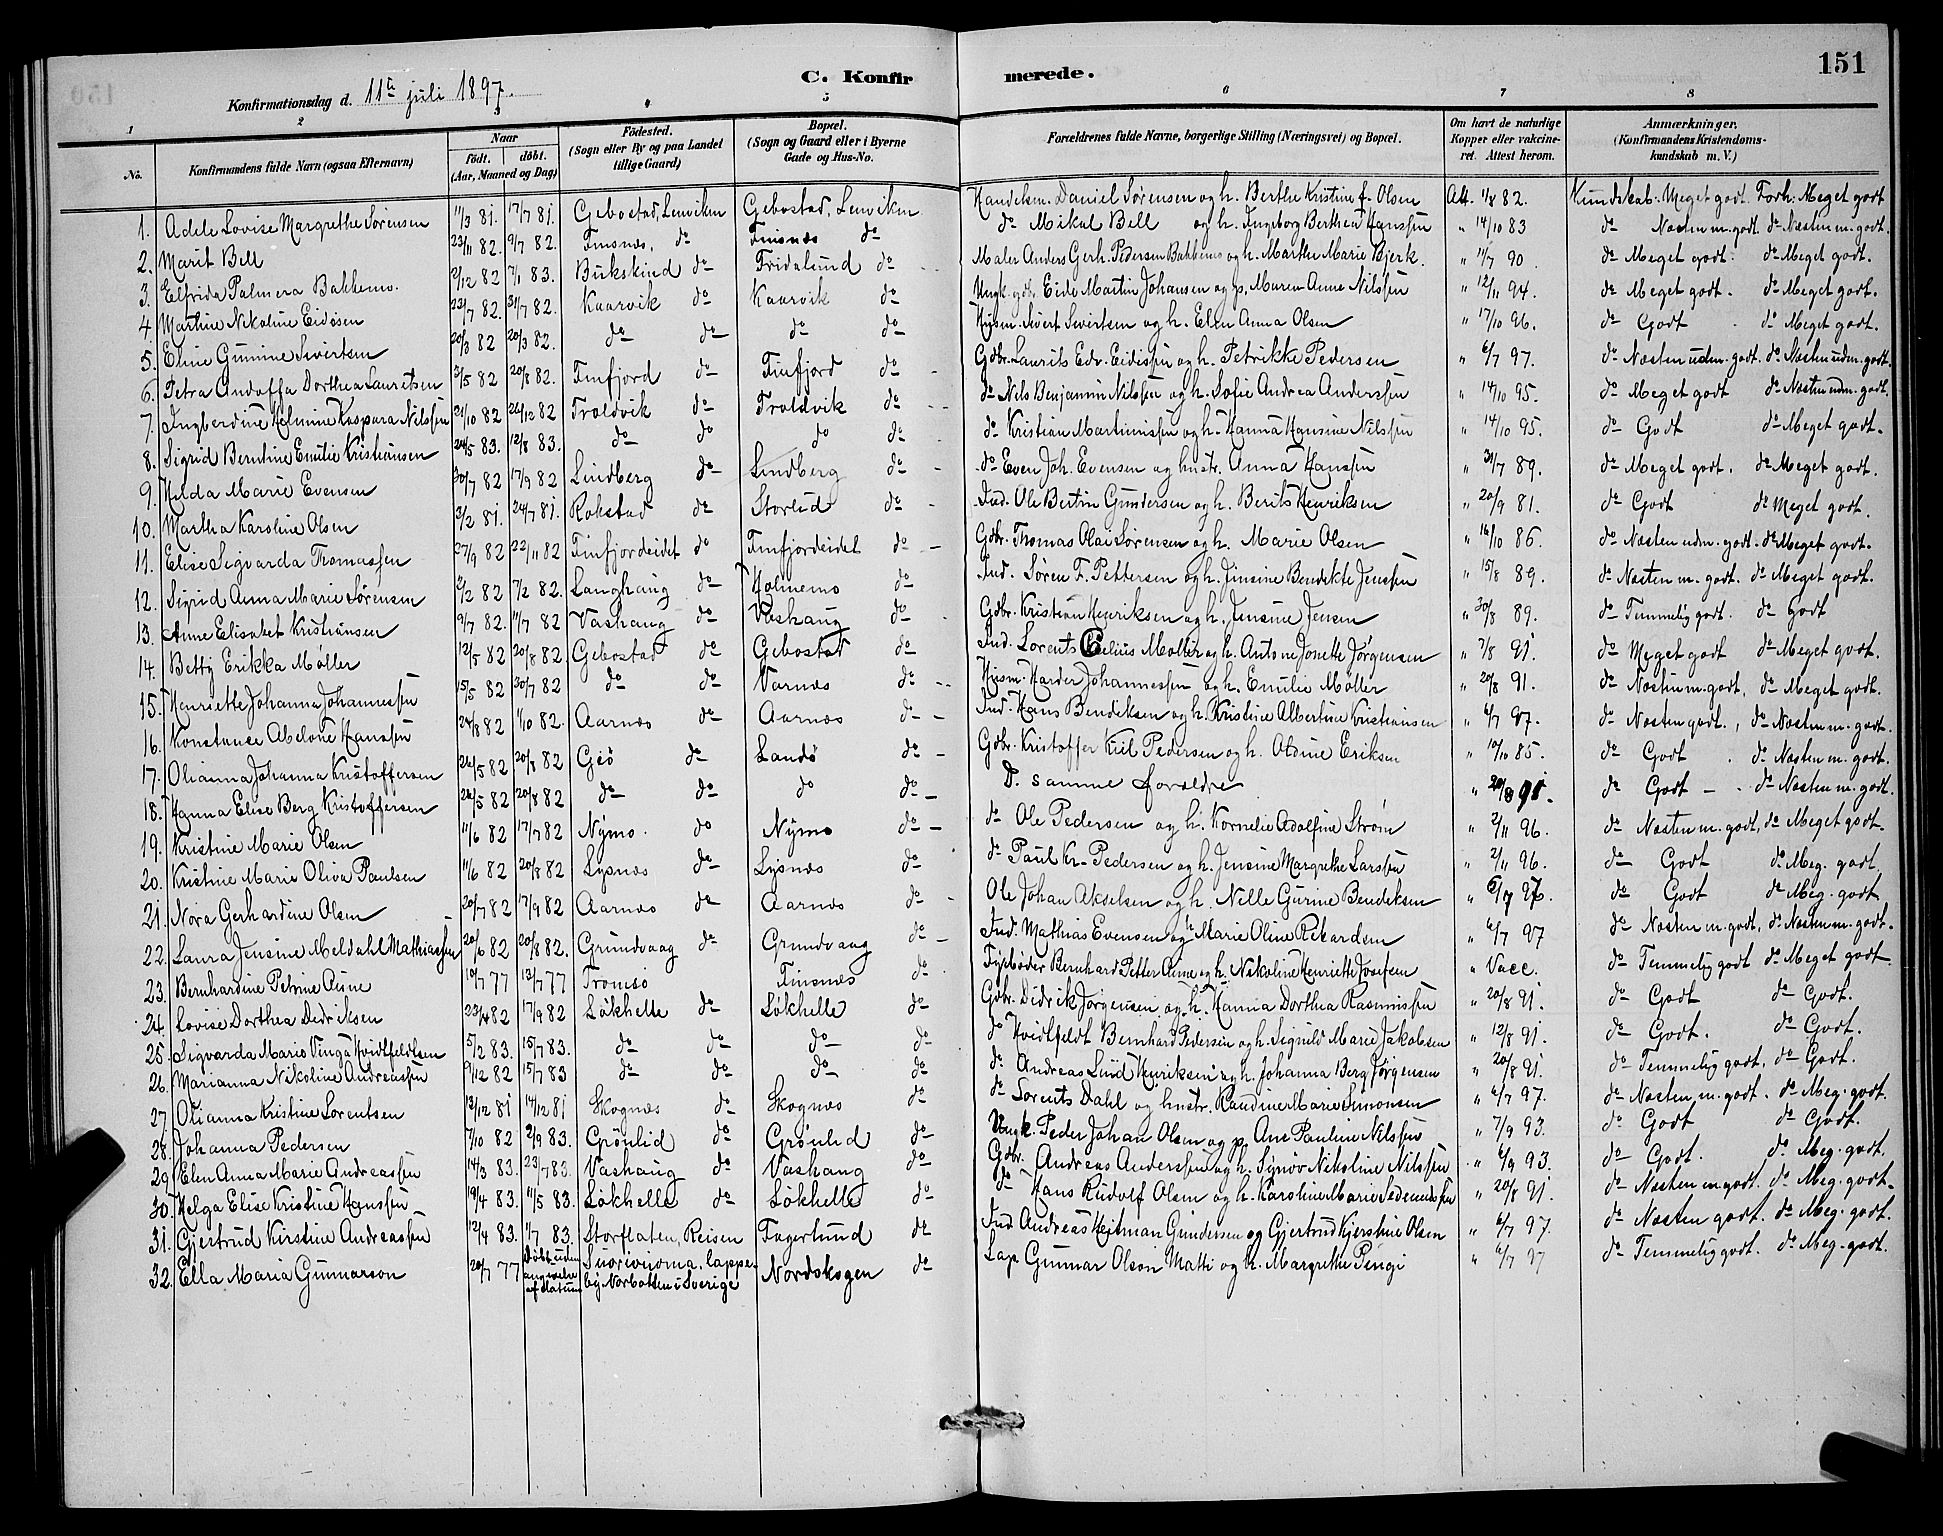 C. Konfirmerede.
151
Konfirmationsdag d. 11te juli 1897.
1 2 3 4 5 6 7 8
No. Konfirmandens fulde Navn (ogsaa Efternavn) Naar født. døbt. (Aar, Maaned og Dag) Fødested. (Sogn eller By og paa Landet tillige Gaard) Bopæl. (Sogn og Gaard eller i Byerne Gade og Hus-No. Forældrenes fulde Navne, borgerlige Stilling (Næringsvei) og Bopæl. Om havt de naturlige Kopper eller vakcineret. Attest herom. Anmærkninger. (Konfirmandens Kristendomskundskab m. V.)
1. Adele Lovise Margrethe Sørensen 11/3 81. 17/7 81. Gebostad, Lenviken Gebostad, Lenviken Handelsm. Daniel Sørensen og h. Berthe Kristine f. Olsen Att. 11/8 82. Kundskab. Meget godt. Forh. Meget godt
2. Marit Bell 23/11 82. 9/7 82. Finsnæs, do Finsnæs do do Mikal Bell og h. Ingeborg Berthea Hanssen " 14/10 83 do Næsten m. godt. do Næsten m. godt.
3. Elfrida Palmera Bakkemo. 2/12 82 7/1 83. Bukskind do Fridalund do Maler Anders Gerh. Pedersen Bakkemo og h. Marthe Marie Bjerk. " 11/7 90. do Meget godt. do Meget godt.
4. Martine Nikoline Eidesen 23/7 82. 31/7 82. Kaarvik do Kaarvik do Ungk. gdbr. Eide Martin Johansen og p. Maren Anne Nilssen " 12/11 94. do Meget godt. do Meget godt.
5. Eline Gunine Sivertsen 20/3 82 20/3 82. do do do do Husm. Sivert Sivertsen og h. Elen Anna Olsen " 17/10 96. do Godt do Meget godt.
6. Petra Andoffa Dorthea Lauritsen 3/5 82 20/8 82. Finfjord do Finfjord do Gdbr. Laurits Edv. Eidissen og h. Petrikke Pedersen " 6/7 97. do Næsten udm. godt. do Næsten udm. godt.
7. Ingberdine Helmine Kaspara Nilssen 21/10 82 26/12 82 Troldvik do Troldvik do do Nils Benjamin Nilssen og h. Sofie Andrea Anderssen " 14/10 95. do Meget godt do Næsten udm. godt.
8. Sigrid Berntine Emilie Kristiansen 24/5 83. 12/8 83. do do do do do Kristian Martinussen og h. Hanna Hansine Nilssen " 14/10 95. do Godt do Meget godt.
9. Hilda Marie Evensen 30/7 82 17/9 82 Lindberg do Lindberg do do Even Joh. Evensen og hustr. Anna Hanssen " 31/7 89. do Meget godt. do Meget godt.
10. Martha Karoline Olsen 3/2 81. 24/7 81. Rokstad do Storlid do Ind. Ole Bertin Gundersen og h. Berit Henriksen " 20/9 81. do Godt do Meget godt.
11. Elise Sigvarda Thomassen 27/9 82 22/11 82 Finfjordeidet do Finfjordeidet do Gdbr. Thomas Olai Sørensen og h. Marie Olsen " 16/10 86. do Næsten udm. godt. do Meget godt.
12. Sigrid Anna Marie Sørensen 2/2 82 7/2 82. Langhaug do Holmemo do Ind. Søren F. Pettersen og h. Jensine Bendikte Jenssen " 15/8 89. do Næsten m. godt. do Meget godt.
13. Anne Elisabet Kristiansen 9/7 82. 11/7 82 Vashaug do Vashaug do Gdbr. Kristian Henriksen og h. Jensine Jensen " 30/8 89. do Temmelig godt. do Godt
14. Betty Erikka Møller 12/5 82 20/8 82. Gebostad do Gebostad do Ind. Lorents Celius Møller og h. Antone Jonette Jørgensen " 7/8 91. do Meget godt do Meget godt.
15. Henriette Johanna Johannessen 15/5 82 30/7 82 do do Varnæs do Husm. Harder Johannessen og h. Emilie Møller " 20/8 91. do Næsten m. godt, do Meget godt.
16. Konstanse Abelone Hanssen 24/8 82 1/10 82. Aarnæs do Aarnæs do Ind. Hans Bendiksen og h. Kristine Albertine Kristiansen " 6/7 97. do Næsten godt., do Næsten m. godt.
17. Olianna Johanna Kristoffersen 26/5 82 20/8 82 Giø do Landø do Gdbr. Kristoffer Kiil Pedersen og h. Oldine Eriksen " 10/10 85. do Godt do Næsten m. godt.
18. Hanna Elise Berg Kristoffersen 26/5 82 20/8 82 do do do do D. samme forældre " 20/8 91. do Godt do Næsten m. godt.
19. Kristine Marie Olsen 11/6 82 17/7 82 Nymo. do Nymo do do Ole Pedersen og h. Kornelie Adolfine Strøm " 2/11 96. do Næsten m. godt, do Meget godt.
20. Kristine Marie Oliva Paulsen 11/6 82 20/8 82 Lysnæs do Lysnæs do do Paul Kr. Pedersen og h. Jensine Margrethe Larssen " 2/11 96. do Godt do Meg. godt.
21. Nora Gerhardine Olsen 20/7 82 17/9 82 Aarnæs do Aarnæs do Ole Johan Akselsen og h. Nelle Gurine Bendiksen " 6/7 96. do Godt do Meg. godt.
22. Laura Jensine Meldahl Mathiassen 20/6 82 20/8 82. Grundvaag do Grundvaag do Ind. Mathias Evensen og h. Marie Oline Rikardsen " 6/7 97 do Næsten m. godt, do Næsten m. godt.
23. Bernhardine Petrine Aune 10/7 77 13/7 77 Tromsø Finsnæs do Fyrbøder Bernhard Petter Aune og h. Nikoline Henriette Josefsen " Vacc. do Temmelig godt do Meget godt
24. Lovise Dorthea Didriksen 23/4 82 17/9 82 Løkhelle do Løkhelle do Gdbr. Didrik Jørgensen og h. Hanna Dorthea Rasmussen " 20/8 91. do Godt do Godt.
25. Sigvarda Marie Vinga Hvidtfeldtsen 5/2 83. 15/7 83. do do do do do Hvidtfeldt Bernhard Pedersen og h. Signild Marie Jakobsen " 12/8 91. do Godt. do Godt.
26. Marianna Nikoline Andreassen 9/12 82 15/7 83 do do do do do Andreas Lind Henriksen og h. Johanna Berg Jørgensen " 20/8 91. do Temmelig godt, do Godt.
27. Olianna Kristine Lorentsen 13/12 81 14/12 81 Skognæs do Skognæs do do Lorents Dahl og hustr. Randine Marie Simonsen " 6/7 97. do Næsten m. godt. do Meg. godt.
28. Johanna Pedersen 7/10 82 2/9 83. Grønlid do Grønlid do Ungk. Peder Johan Olsen og p. Ane Pauline Nilssen " 7/9 93. do Godt do Godt.
29. Elen Anna Marie Andreassen 14/3 83. 23/7 83. Vashaug do Vashaug do Gdbr. Andreas Anderssen og h. Synøv Nikoline Nilssen " 6/9 93. do Godt. do Meg. godt.
30. Helga Elise Kristine Hanssen 19/4 83. 11/5 83. Løkhelle do Løkhelle do do Hans Rudolf Olsen og h. Karoline Marie Sedeniussen " 20/8 91. do Næsten m. godt. do Meg. godt.
31. Gjertrud Kirstine Andreassen 12/4 83. 1/7 83. Storflaten, Reisen Fagerlund do Ind. Andreas Heitman Gundersen og Gjertrud Kjerstine Olsen " 6/7 97. do Næsten godt. do Meg. godt.
32. Ella Maria Gunnarson 20/7 77 Døbt uden angivelse af datum Suorivuoma, lappeby Norbotten i Sverige Nordskogen do Lap Gunnar Olson Matti og h. Margrethe Pingi " 6/7 97 do Temmelig godt. do Meg. godt.